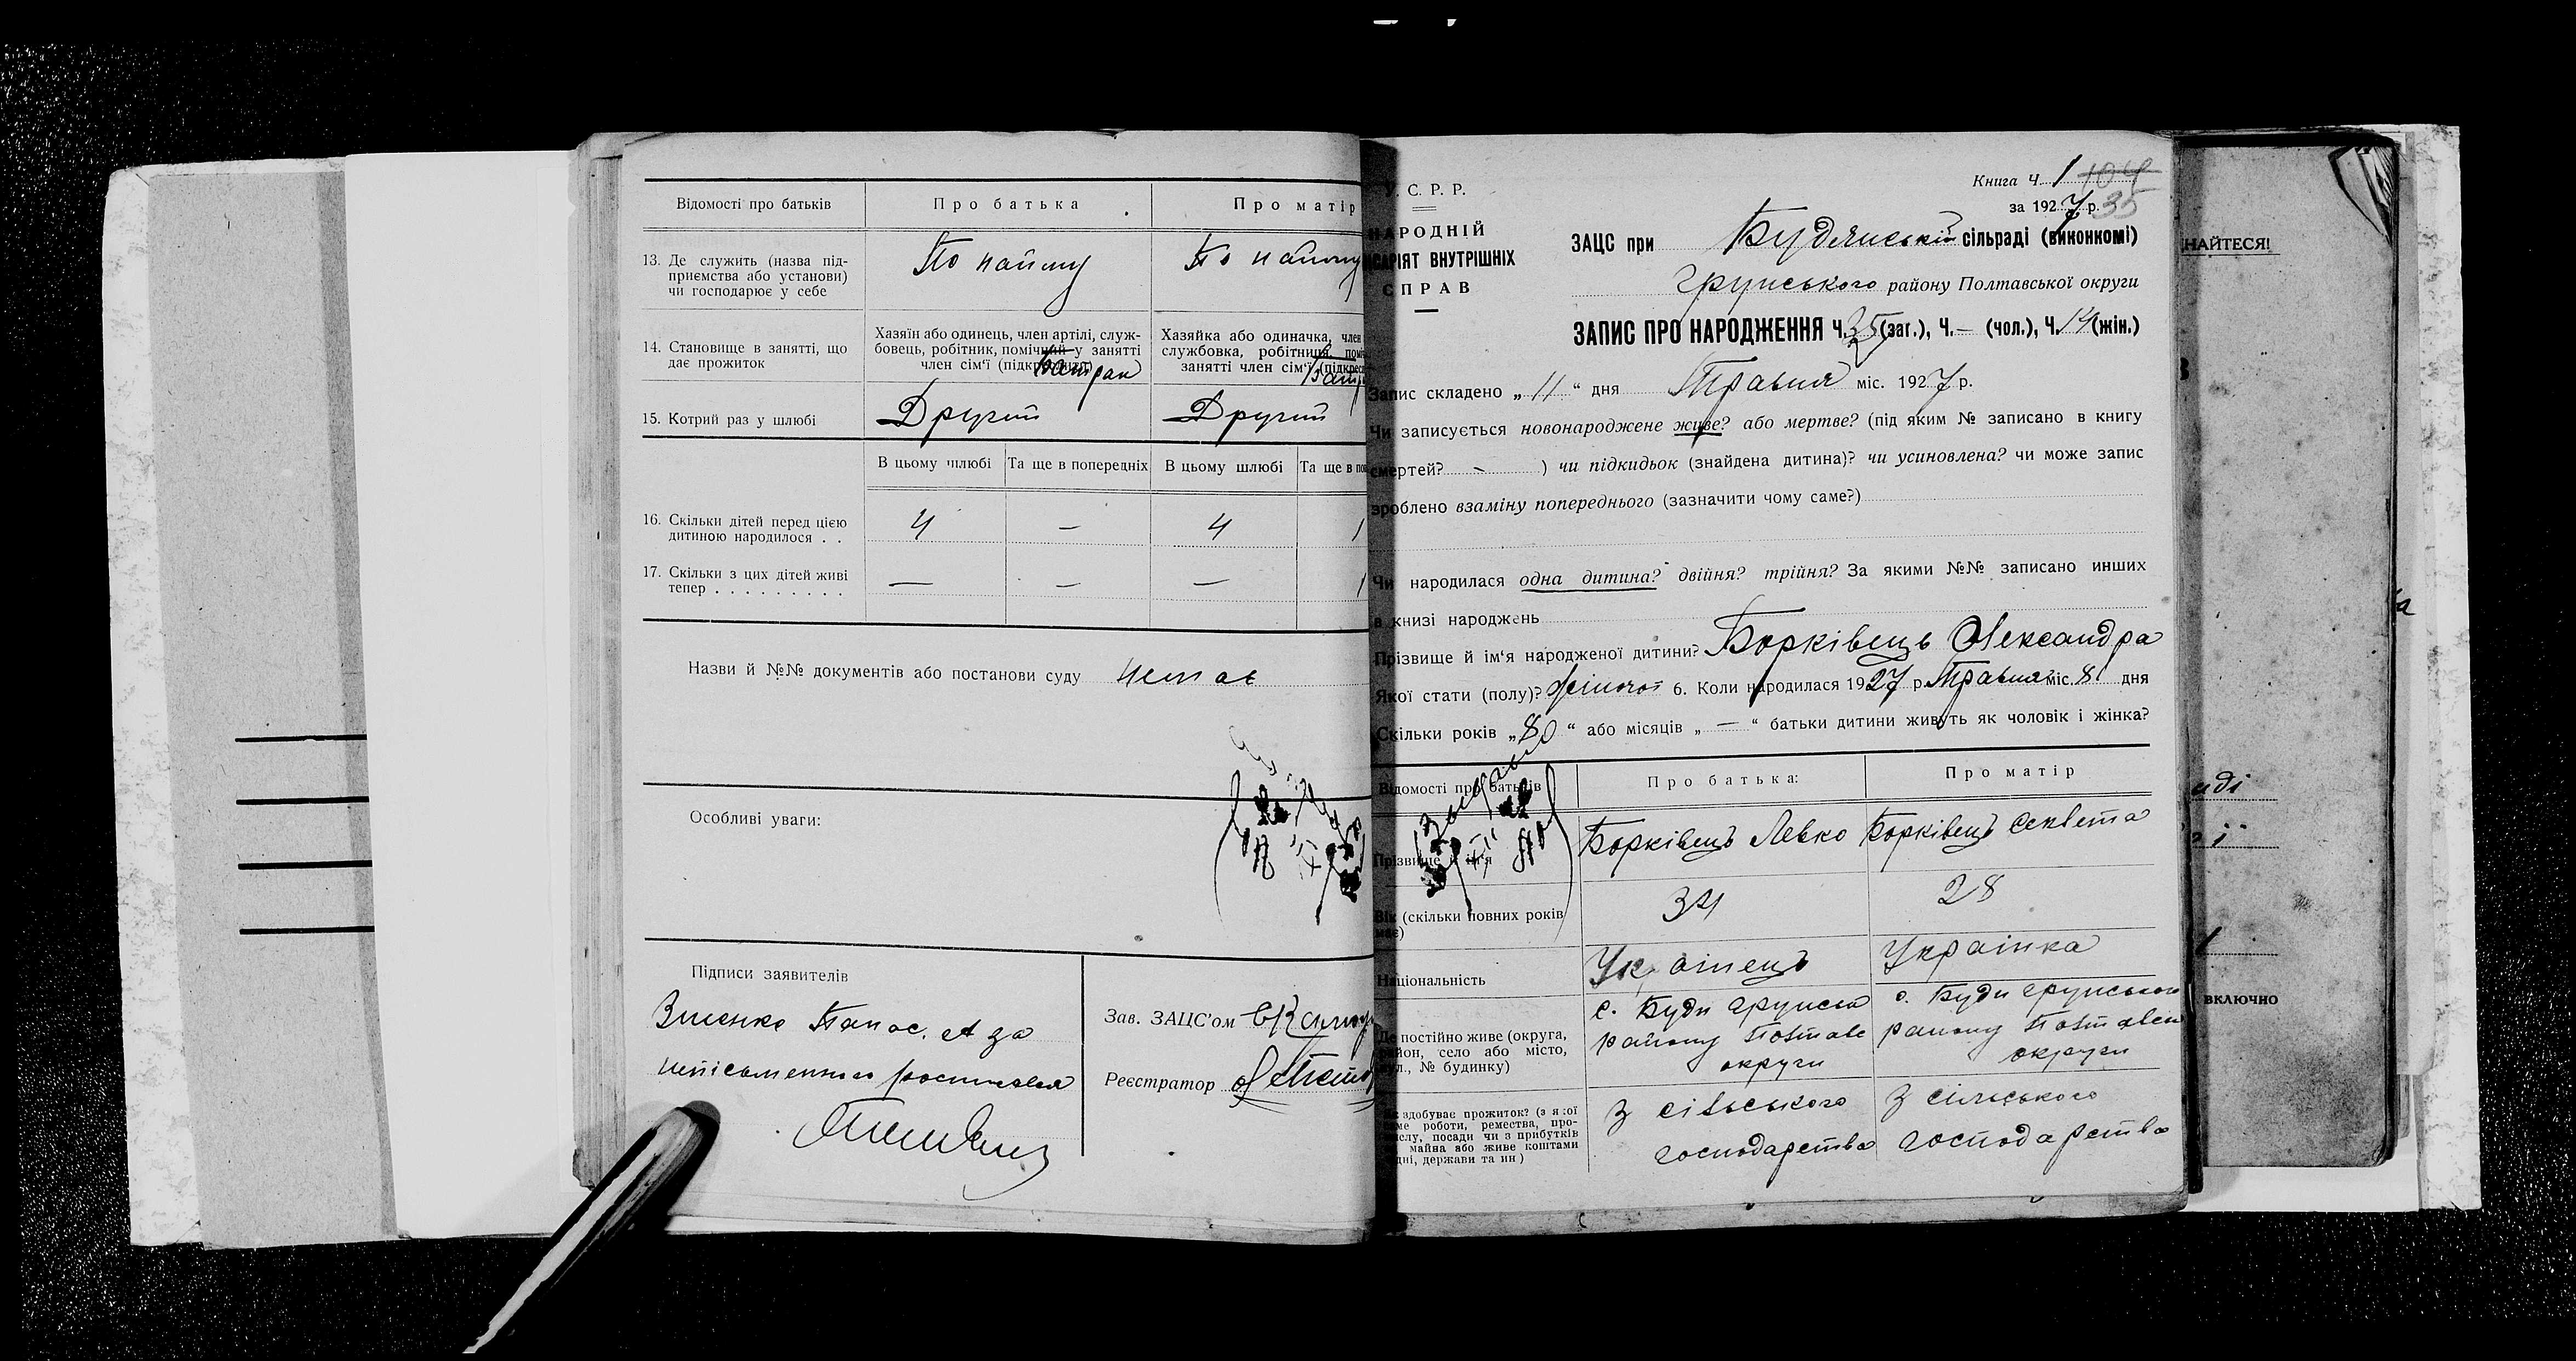 Відомості про батьків
Про батька
Про матір
13. Де служить (назва під-
приємства або установи)
чи господарює у себе
По найму
По найму
14. Становище в занятті, що
дає прожиток
Хазяїн або одинець, член артілі, служ-
бовець, робітник, помічний у занятті
член сім'ї
Батрак
Хазяйка або одиначка, член
службовка, робітниця,
занятті член сім'ї
15. Котрий раз у шлюбі
Другий
Другий
В цьому шлюбі
Та ще в попередніх
В цьому шлюбі
Та ще в
16. Скільки дітей перед цією
дитиною народилося . .
4
—
4
1
17. Скільки з цих дітей живі
тепер . . . . . . . . .
—
—
—
1
Назви й №№ документів або постанови суду немає
Особливі уваги:
Підписи заявителів
Панас. А за
Зав. ЗАЦС'ом
Реєстратор
С. Р. Р.
НАРОДНІЙ
ВНУТРІШНІХ
СПРАВ
Книга Ч. 1 104
за 1927 р. 35
ЗАЦС при сільраді (виконкомі)
Грунського району Полтавської округи
ЗАПИС ПРО НАРОДЖЕННЯ Ч. 35 (заг.), Ч. — (чол.), Ч. 14 (жін.)
Запис складено „ 11 “ дня Травня міс. 1927 р.
Чи записується новонароджене живе? або мертве? (під яким № записано в книгу
смертей? - ) чи підкидьок (знайдена дитина)? чи усиновлена? чи може запис
зроблено взаміну попереднього (зазначити чому саме?)
Чи народилася одна дитина? двійня? трійня? За якими №№ записано инших
в книзі народжень
Прізвище й ім'я народженої дитини? Борківець Олександра
Якої стати (полу)? жіночої 6. Коли народилася 1927 р. Травня міс. 8 дня
Скільки років „ “ або місяців „ — “ батьки дитини живуть як чоловік і жінка?
Відомості про батьків
Про батька:
Про матір
Прізвище й ім'я
Борківець Левко
Борківець
Вік (скільки повних років
має)
34
28
Національність
Українець
Українка
Де постійно живе (округа,
район, село або місто,
вул., № будинку)
с. Буди Грунськ
району Полтавс
округи
с. Буди Грунського
району Полтавськ
округи
здобуває прожиток? (з якої
роботи, ремества, про-
мислу, посади чи з прибутків
майва або живе коштами
держави та ин)
З сільського
господарства
З сільського
господарства
НАЙТЕСЯ!
включно